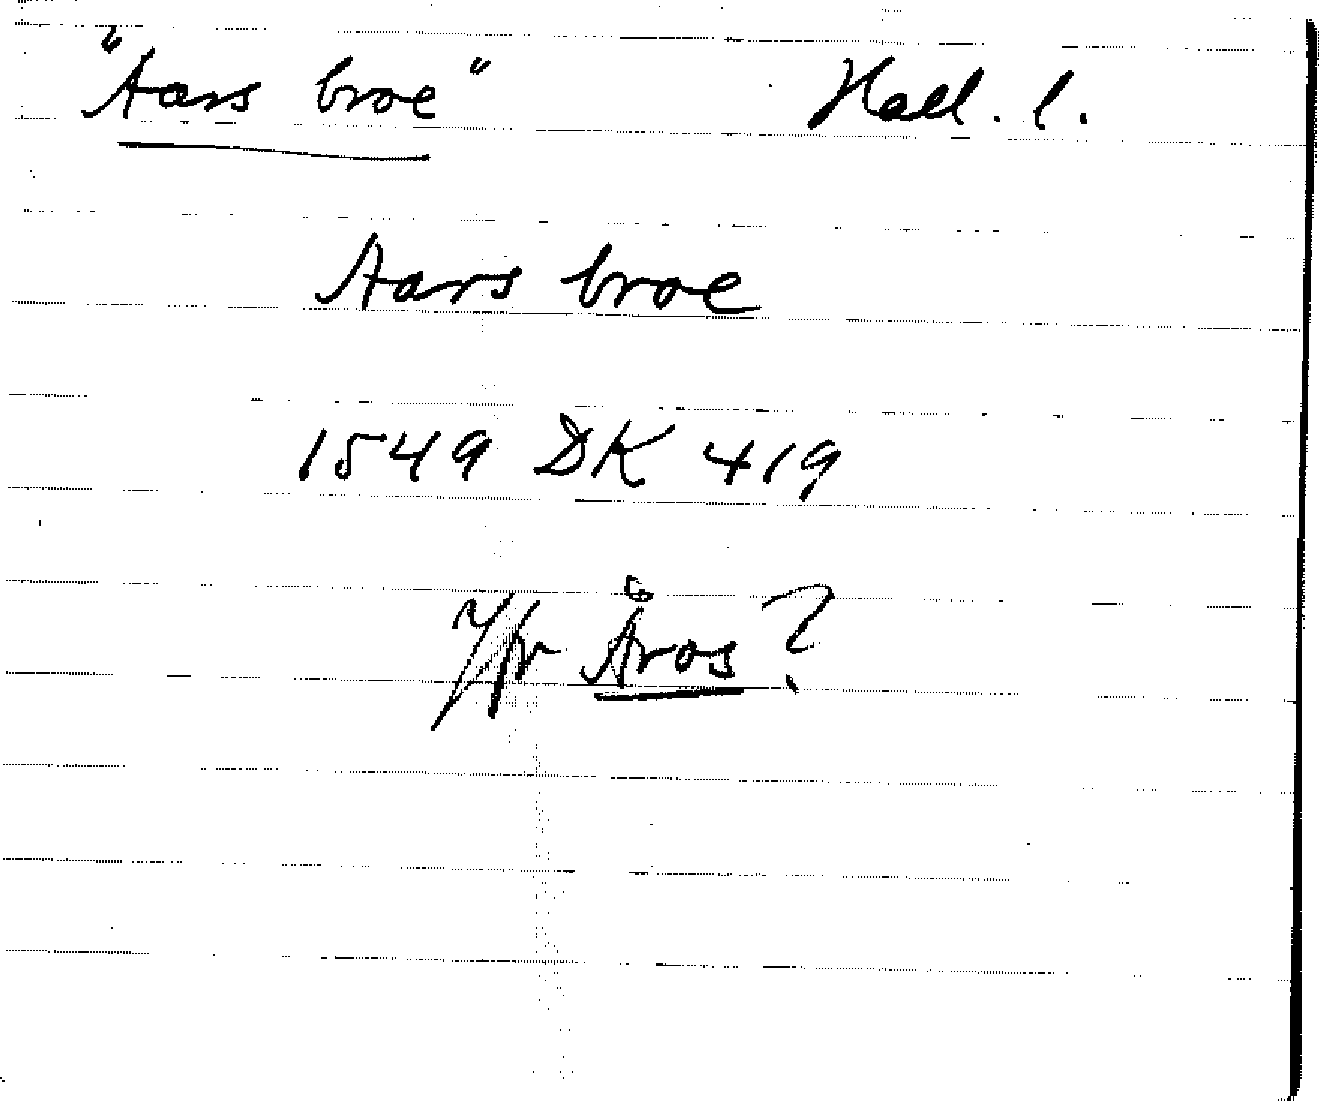 "Aars broe" Hall. l.
Aars broe
1549 DK 419
Jfr Åros?